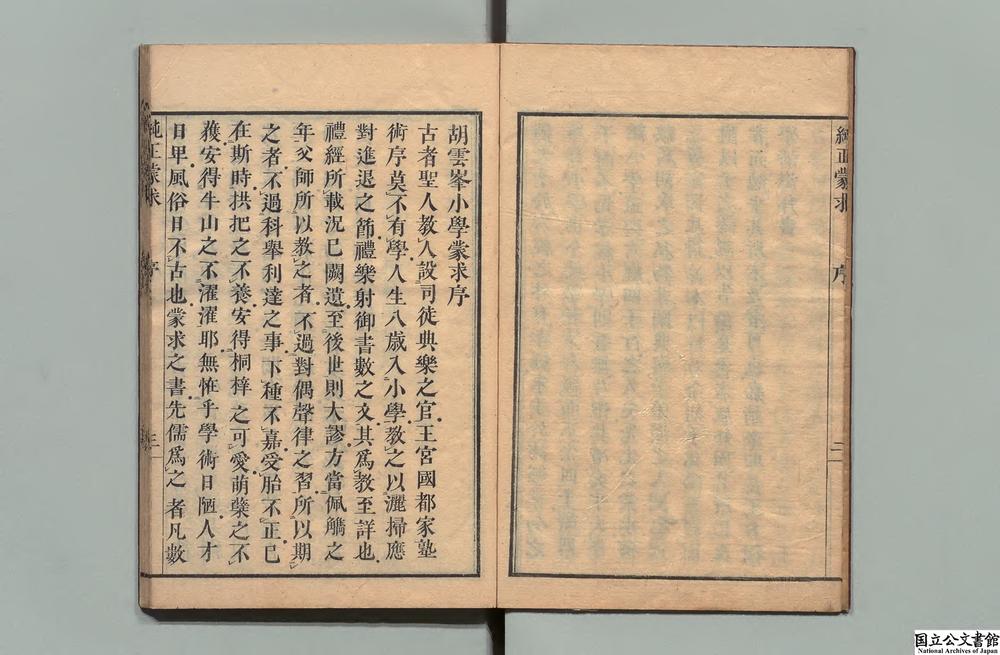 純正蒙求
序
二
胡雲峯小學蒙求序
古者聖人敎人設司徒典樂之官王宮國都家塾
術序莫不有學人生八歲入小學敎之以灑掃應
對進退之節禮樂射御書數之文其爲敎至詳也
禮經所載況已闕遺至後世則大謬方當佩觿之
年父師所以教之者不過對偶聲律之習所以期
之者不過科舉利達之事下種不嘉受胎不正已
在斯時拱把之不養安得桐梓之可愛萌蘗之不
蓘安得牛山之不濯濯耶無惟乎學術日陋人才
日卑風俗日不古也蒙求之書先儒爲之者凡數
純正蒙求
序
三
国立公文書館
National Archives of Japan